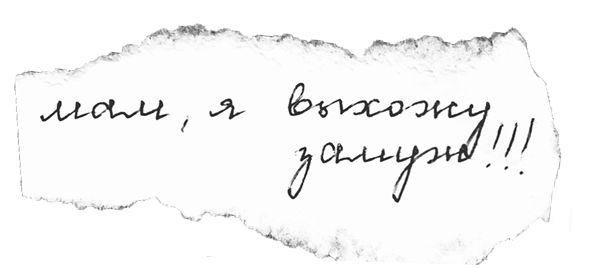 мам, я выхожу
замуж!!!